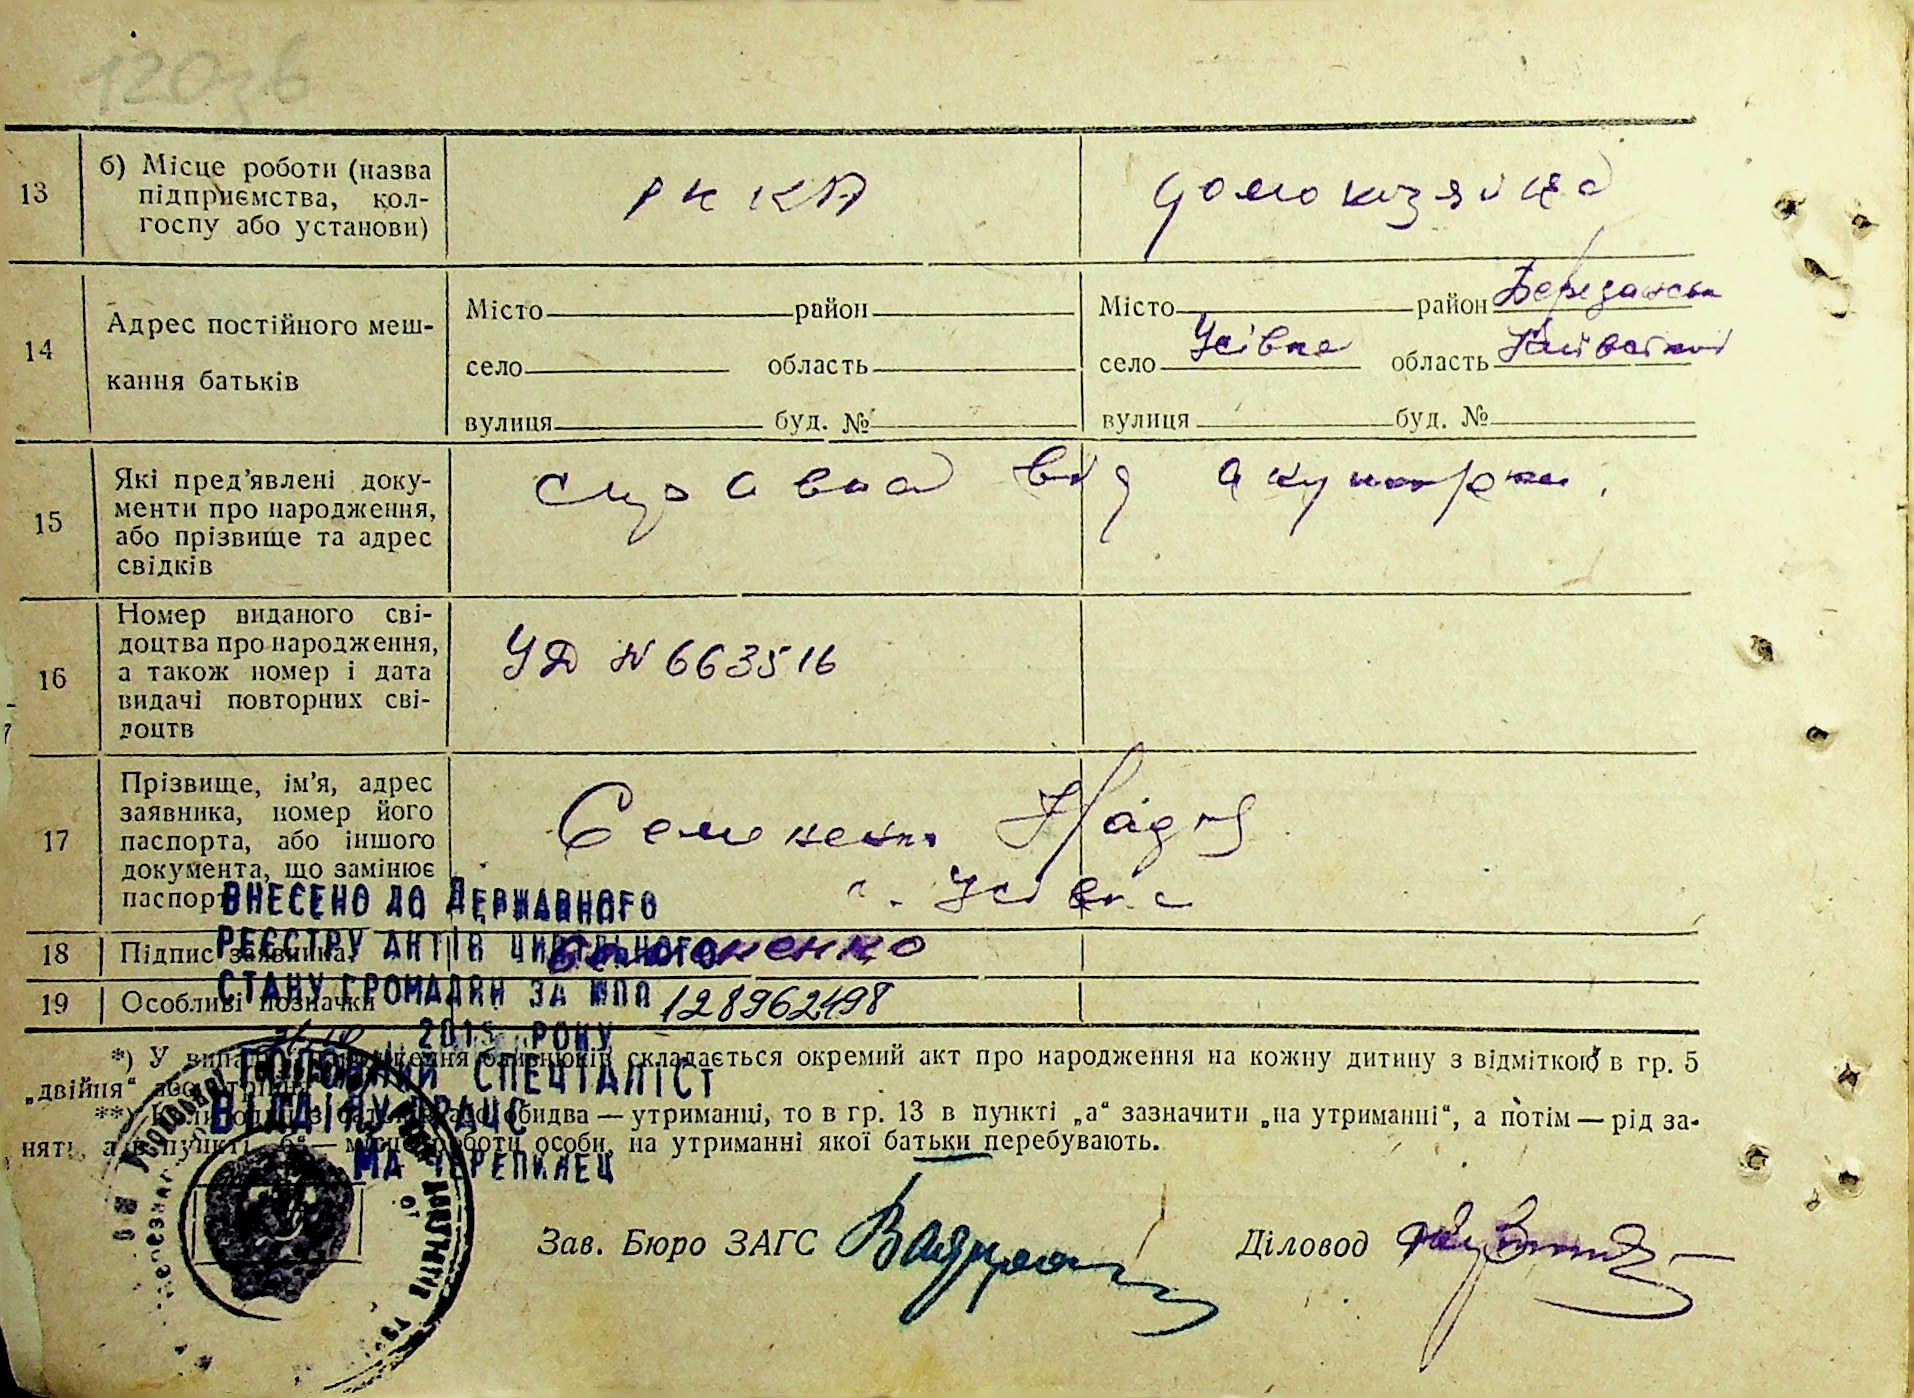 120зв
13
б) Місце роботи (назва
підприємства, кол-
госпу або установи)
РККА
домохозяйка
14
Адрес постійного меш-
кання батьків
Місто район
село область
вулиця буд. №
Місто район Березанськ
село Усівка область Київської
вулиця буд. №
15
Які пред’явлені доку-
менти про народження,
або прізвище та адрес
свідків
справка від акушерки.
16
Номер виданого сві-
доцтва про народження,
а також номер і дата
видачі повторних сві-
доцтв
УД № 663516
17
Прізвище, ім’я, адрес
заявника, номер його
паспорта, або іншого
документа, що замінює
паспорт
Семененко Надія
с. Усівка
18
Підпис заявника
Семененко
19
Особливі позначки
128962498
ВНЕСЕНО ДО ДЕРЖАВНОГО
РЕЄСТРУ АКТІВ ЦИВІЛЬНОГО
СТАНУ ГРОМАДЯН ЗА №
2015 РОКУ
ГОЛОВНИЙ СПЕЦІАЛІСТ
ВІДДІЛУ ДРАЦС
*) У випадку народження близнюків складається окремий акт про народження на кожну дитину з відміткою в гр. 5
„двійня“ або „трійня“
**) Коли один з батьків або обидва — утриманці, то в гр. 13 в пункті „а“ зазначити „на утриманні“, а потім — рід за-
нять, а в пункті „б“ — місце роботи особи, на утриманні якої батьки перебувають.
Зав. Бюро ЗАГС
Діловод